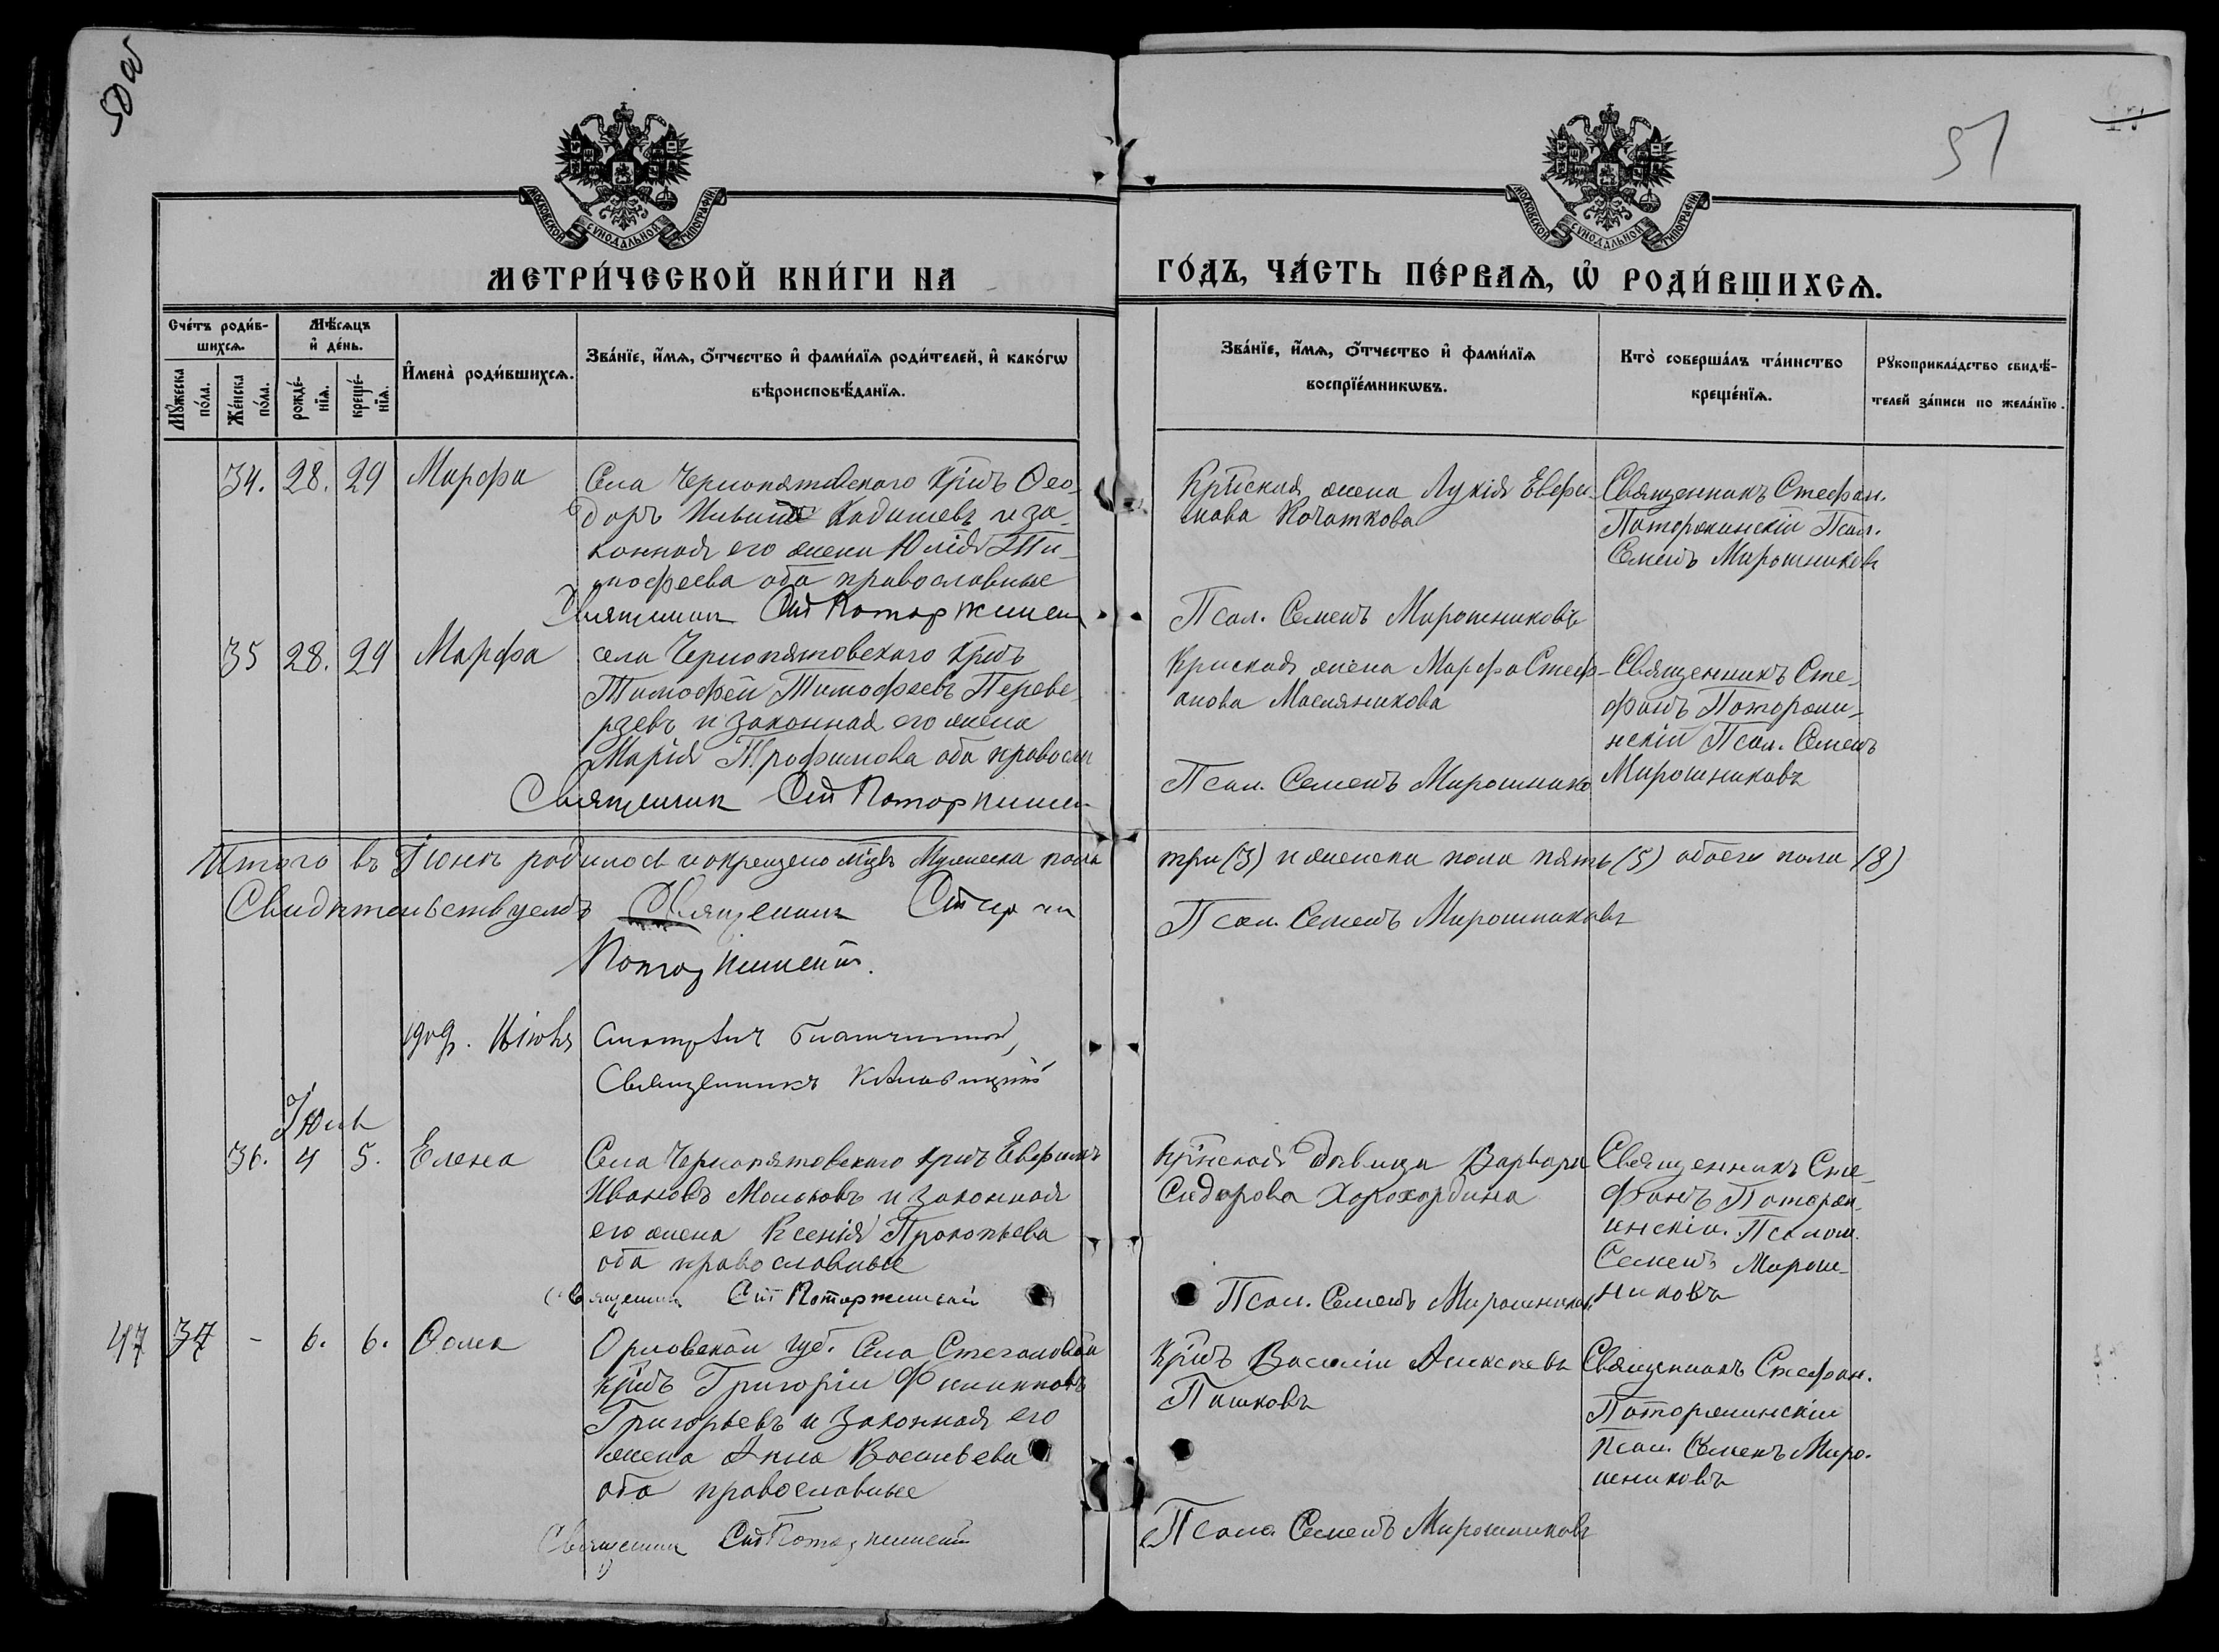 50 об
51
17
МОСКОВСКОЙ СѴНОДАЛЬНОЙ ТИПОГРАФІИ
МОСКОВСКОЙ СѴНОДАЛЬНОЙ ТИПОГРАФІИ
МЕТРИ́ЧЕСКОЙ КНИ́ГИ НА
ГО́ДЪ, ЧА́СТЬ ПЕ́РВАѦ, Ѡ҆ РОДИ́ВШИХСѦ.
Сче́тъ роди́в-
шихсѧ.
Мꙋ́жеска по́ла.
Же́нска по́ла.
Мѣ́сѧцъ
и҆ де́нь.
рожде́-нїѧ.
креще́-нїѧ.
И҆мена̀ роди́вшихсѧ.
Зва́нїе, и҆́мѧ, ѻ҆́тчество и҆ фами́лїѧ роди́телей, и҆ како́гѡ
вѣроисповѣ́данїѧ.
Зва́нїе, и҆́мѧ, ѻ҆́тчество и҆ фами́лїѧ
воспрїе́мникѡвъ.
Кто̀ соверша́лъ та́инство
креще́нїѧ.
Рꙋкоприкла́дство свидѣ́-
телей за́писи по жела́нїю.
34. 28. 29 Марфа
Села Чернопятовскаго крнъ Ѳео-
доръ Кадишевъ и за-
конная его жена Юлія Ти-
мофеева оба православные
Священник Ст Поторжинск
Крнская жена Лукія Евфи-
мова Кочаткова
Псал. Семенъ Мирошниковъ
Священникъ Стефан.
Поторжинскій Псал.
Семенъ Мирошниковъ
35 28. 29 Марфа
села Чернопятовскаго крнъ
Тимофей Тимофеевъ Переве-
рзевъ и законная его жена
Марія Трофимова оба правосла
Священник Ст Поторжинск
Крнская жена Марфа Стеф-
анова Масляникова
Псал. Семенъ Мирошнико
Священникъ Сте-
фанъ Поторжи-
нскій Псал. Семенъ
Мирошниковъ
Итого въ Іюнѣ родилось и окрещено Мужеска пола
три (3) и женска пола пять (5) обоего пола (8)
Свидѣтельствуемъ Священник Стефан
Поторжинскій.
Псал. Семенъ Мирошниковъ
Священникъ
Іюль
36. 4 5. Елена
Села Чернопятовскаго крнъ Евфимъ
Ивановъ Мольковъ и законная
его жена Ксенія Прокопьева
оба православные
Священник Ст Поторжинскій
Крнская дѣвица Варвара
Сидорова Хорохордина
Псал. Семенъ Мирошников.
Священникъ Сте-
фанъ Поторж-
инскій. Псалом.
Семенъ Мирош-
никовъ
47 37 - 6. 6. Ѳома
Орловской губ. Села
крнъ Григорій Филипповъ
Григорьевъ и законная его
жена Анна Васильева
оба православные
Священник Ст Поторжинскій
крнъ Василій Алексѣевъ
Пашковъ
Псалом. Семенъ Мирошниковъ
Священникъ Стефан.
Поторжинскій
Псал. Семенъ Миро-
шниковъ